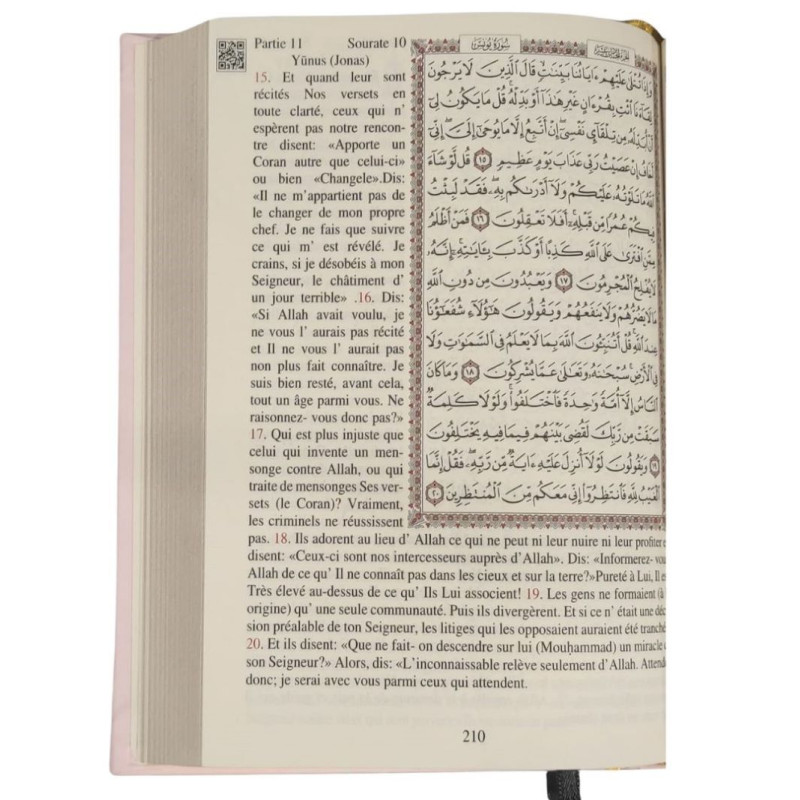 Partie 11 Sourate 10
Yūnus (Jonas)
15. Et quand leur sont
récités Nos versets en
toute clarté, ceux qui n'
espèrent pas notre rencon-
tre disent: «Apporte un
Coran autre que celui-ci»
ou bien «Changele».Dis:
«Il ne m'appartient pas de
le changer de mon propre
chef. Je ne fais que suivre
ce qui m' est révélé. Je
crains, si je désobéis à mon
Seigneur, le châtiment d'
un jour terrible» .16. Dis:
«Si Allah avait voulu, je
ne vous l' aurais pas récité
et Il ne vous l' aurait pas
non plus fait connaître. Je
suis bien resté, avant cela,
tout un âge parmi vous. Ne
raisonnez- vous donc pas?»
17. Qui est plus injuste que
celui qui invente un men-
songe contre Allah, ou qui
traite de mensonges Ses ver-
sets (le Coran)? Vraiment,
les criminels ne réussissent
pas. 18. Ils adorent au lieu d' Allah ce qui ne peut ni leur nuire ni leur profiter e
disent: «Ceux-ci sont nos intercesseurs auprès d'Allah». Dis: «Informerez- vou
Allah de ce qu' Il ne connaît pas dans les cieux et sur la terre?»Pureté à Lui, Il e
Très élevé au-dessus de ce qu' Ils Lui associent! 19. Les gens ne formaient (à
origine) qu' une seule communauté. Puis ils divergèrent. Et si ce n' était une déc
sion préalable de ton Seigneur, les litiges qui les opposaient auraient été tranché
20. Et ils disent: «Que ne fait- on descendre sur lui (Mouḥammad) un miracle d
son Seigneur?» Alors, dis: «L'inconnaissable relève seulement d'Allah. Attend
donc; je serai avec vous parmi ceux qui attendent.
سُورَةُ يُونُسَ
وَإِذَا تُتْلَىٰ عَلَيْهِمْ ءَايَاتُنَا بَيِّنَٰتٍ قَالَ ٱلَّذِينَ لَا يَرْجُونَ
لِقَآءَنَا ٱئْتِ بِقُرْءَانٍ غَيْرِ هَٰذَآ أَوْ بَدِّلْهُ ۚ قُلْ مَا يَكُونُ لِىٓ
أَنْ أُبَدِّلَهُۥ مِن تِلْقَآئِ نَفْسِىٓ ۖ إِنْ أَتَّبِعُ إِلَّا مَا يُوحَىٰٓ إِلَىَّ ۖ إِنِّىٓ
أَخَافُ إِنْ عَصَيْتُ رَبِّى عَذَابَ يَوْمٍ عَظِيمٍ ١٥ قُل لَّوْ شَآءَ
ٱللَّهُ مَا تَلَوْتُهُۥ عَلَيْكُمْ وَلَآ أَدْرَىٰكُم بِهِۦ ۖ فَقَدْ لَبِثْتُ
فِيكُمْ عُمُرًا مِّن قَبْلِهِۦٓ ۚ أَفَلَا تَعْقِلُونَ ١٦ فَمَنْ أَظْلَمُ
مِمَّنِ ٱفْتَرَىٰ عَلَى ٱللَّهِ كَذِبًا أَوْ كَذَّبَ بِـَٔايَٰتِهِۦٓ ۚ إِنَّهُۥ
لَا يُفْلِحُ ٱلْمُجْرِمُونَ ١٧ وَيَعْبُدُونَ مِن دُونِ ٱللَّهِ
مَا لَا يَضُرُّهُمْ وَلَا يَنفَعُهُمْ وَيَقُولُونَ هَٰٓؤُلَآءِ شُفَعَٰٓؤُنَا
عِندَ ٱللَّهِ ۚ قُلْ أَتُنَبِّـُٔونَ ٱللَّهَ بِمَا لَا يَعْلَمُ فِى ٱلسَّمَٰوَٰتِ وَلَا
فِى ٱلْأَرْضِ ۚ سُبْحَٰنَهُۥ وَتَعَٰلَىٰ عَمَّا يُشْرِكُونَ ١٨ وَمَا كَانَ
ٱلنَّاسُ إِلَّآ أُمَّةً وَٰحِدَةً فَٱخْتَلَفُوا۟ ۚ وَلَوْلَا كَلِمَةٌ
سَبَقَتْ مِن رَّبِّكَ لَقُضِىَ بَيْنَهُمْ فِيمَا فِيهِ يَخْتَلِفُونَ
١٩ وَيَقُولُونَ لَوْلَآ أُنزِلَ عَلَيْهِ ءَايَةٌ مِّن رَّبِّهِۦ ۖ فَقُلْ إِنَّمَا
ٱلْغَيْبُ لِلَّهِ فَٱنتَظِرُوٓا۟ إِنِّى مَعَكُم مِّنَ ٱلْمُنتَظِرِينَ ٢٠
210